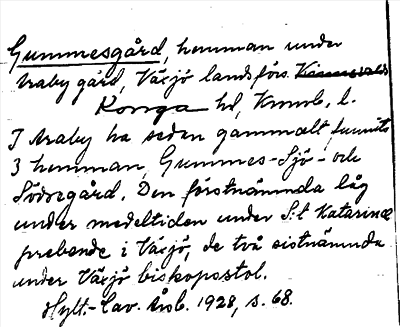 Gummesgård, hemman under
Araby gård, Växjö landsförs. Kinnevalds
Konga hd, Kronb. l.
I Araby ha sedan gammalt funnits
3 hemman, Gummes- Sjö- och
Södregård. Den förstnämnda låg
under medeltiden under S:t Katarinæ
prebende i Växjö, de två sistnämnda
under Växjö biskopostol.
Hylt.-Cav. Årsb. 1928, s. 68.